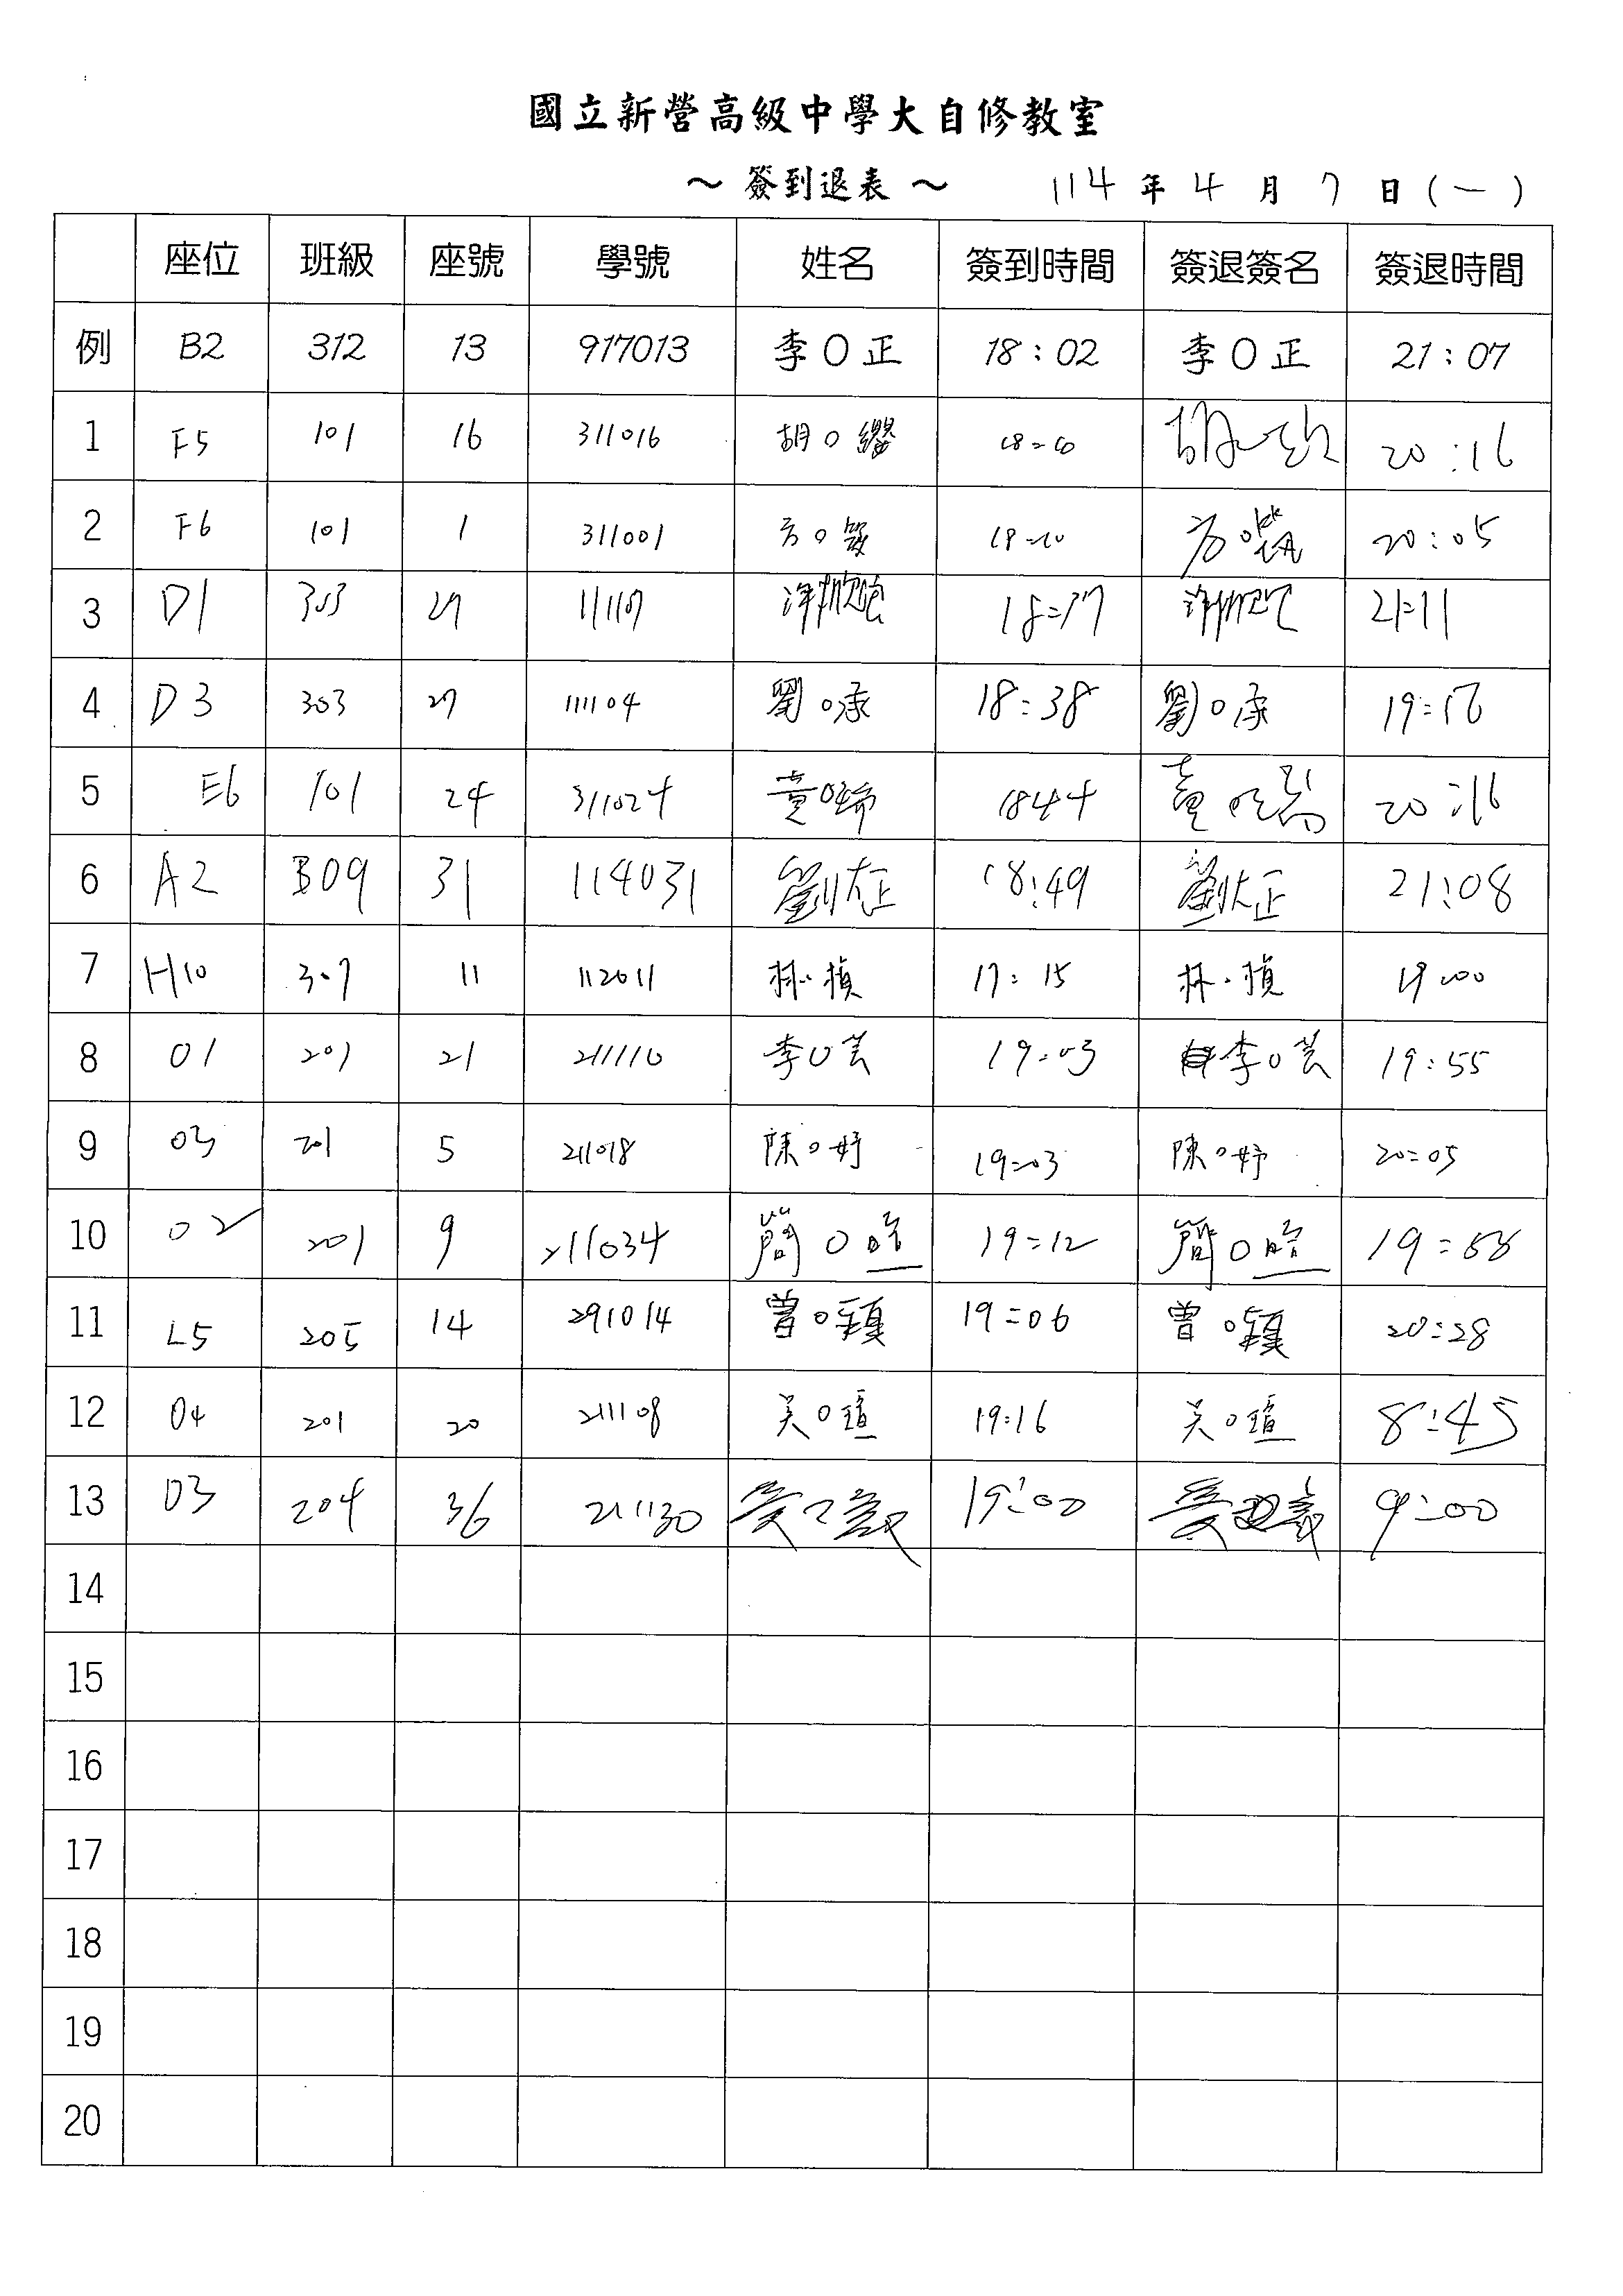 國立新營高級中學大自修教室
～ 簽到退表 ～ 114 年 4 月 7 日 (一)
座位 班級 座號 學號 姓名 簽到時間 簽退簽名 簽退時間
例 B2 312 13 917013 李O正 18:02 李O正 21:07
1 F5 101 16 311016 胡O纓 20:16
2 F6 101 1 311001 方O 方O 20:05
3 D1 303 21:11
4 D3 303 27 111104 劉O承 18:38 劉O承 19:16
5 E6 101 24 311024 黃O 1844 黃O 20:16
6 A2 309 31 114031 劉大正 18:49 劉大正 21:08
7 H10 307 11 112011 林.楨 17:15 林.楨 19:00
8 O1 201 21 211110 李O芸 19:03 李O芸 19:55
9 O3 201 5 211018 陳O妤 19:03 陳O妤 20:05
10 O2 201 9 211034 簡O暄 19:12 簡O暄 19:58
11 L5 205 14 291014 曾O穎 19:06 曾O穎 20:28
12 O4 201 20 211108 吳O瑄 19:16 吳O瑄 8:45
13 D3 204 36 211130 19:00 9:00
14
15
16
17
18
19
20